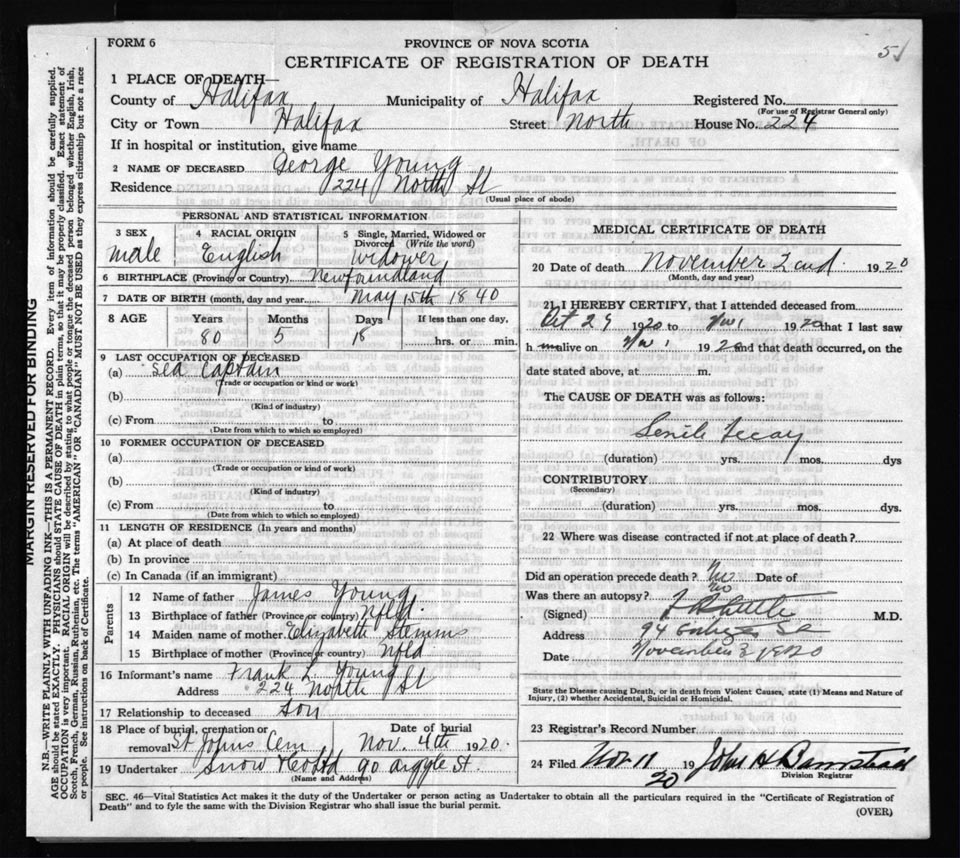 FORM 6
PROVINCE OF NOVA SCOTIA
5
CERTIFICATE OF REGISTRATION OF DEATH
1 PLACE OF DEATH—
County of Halifax Municipality of Halifax Registered No.
(For use of Registrar General only)
City or Town Halifax Street North House No. 224
If in hospital or institution, give name
2 NAME OF DECEASED George Young
Residence 224 North St
(Usual place of abode)
PERSONAL AND STATISTICAL INFORMATION
3 SEX male
4 RACIAL ORIGIN English
5 Single, Married, Widowed or
Divorced (Write the word)
widower
6 BIRTHPLACE (Province or Country) Newfoundland
7 DATE OF BIRTH (month, day and year) May 15th 1840
8 AGE Years Months Days If less than one day,
80 5 18 hrs. or min.
9 LAST OCCUPATION OF DECEASED
(a) Sea Captain
(Trade or occupation or kind or work)
(b)
(Kind of industry)
(c) From to
(Date from which to which so employed)
10 FORMER OCCUPATION OF DECEASED
(a)
(Trade or occupation or kind of work)
(b)
(Kind of industry)
(c) From to
(Date from which to which so employed)
11 LENGTH OF RESIDENCE (In years and months)
(a) At place of death
(b) In province
(c) In Canada (if an immigrant)
Parents
12 Name of father James Young
13 Birthplace of father (Province or country) Nfld.
14 Maiden name of mother Elizabeth
15 Birthplace of mother (Province or country) Nfld
16 Informant's name Frank L Young
Address 224 North St
17 Relationship to deceased son
18 Place of burial, cremation or
removal St Johns Cem
Date of burial
Nov. 4th 1920.
19 Undertaker Snow & Co Ltd 90 Argyle St.
(Name and Address)
MEDICAL CERTIFICATE OF DEATH
20 Date of death November 2nd. 1920
(Month, day and year)
21 I HEREBY CERTIFY, that I attended deceased from
Oct 29 1920 to Nov 1 1920 that I last saw
h im alive on Nov 1 1920 and that death occurred, on the
date stated above, at m.
The CAUSE OF DEATH was as follows:
Senile Decay
(duration) yrs. mos. dys
CONTRIBUTORY
(Secondary)
(duration) yrs. mos. dys.
22 Where was disease contracted if not at place of death?
Did an operation precede death? No Date of
Was there an autopsy? No
(Signed) M.D.
Address 94 St
Date November 3 1920
State the Disease causing Death, or in death from Violent Causes, state (1) Means and Nature of
Injury, (2) whether Accidental, Suicidal or Homicidal.
23 Registrar's Record Number
24 Filed Nov 11 20 19 John H Barnstead
Division Registrar
SEC. 46—Vital Statistics Act makes it the duty of the Undertaker or person acting as Undertaker to obtain all the particulars required in the "Certificate of Registration of
Death" and to fyle the same with the Division Registrar who shall issue the burial permit.
(OVER)
MARGIN RESERVED FOR BINDING
N.B.—WRITE PLAINLY WITH UNFADING INK—THIS IS A PERMANENT RECORD. Every item of information should be carefully supplied.
AGE should be stated EXACTLY. PHYSICIANS should STATE CAUSE OF DEATH in plain terms, so that it may be properly classified. Exact statement of
OCCUPATION is very important. RACIAL ORIGIN will be described by stating to what people or tongue the deceased person belonged whether English, Irish,
Scotch, French, German, Russian, Ruthenian, etc. The terms "AMERICAN" OR "CANADIAN" MUST NOT BE USED as they express citizenship but not a race
or people. See instructions on back of Certificate.